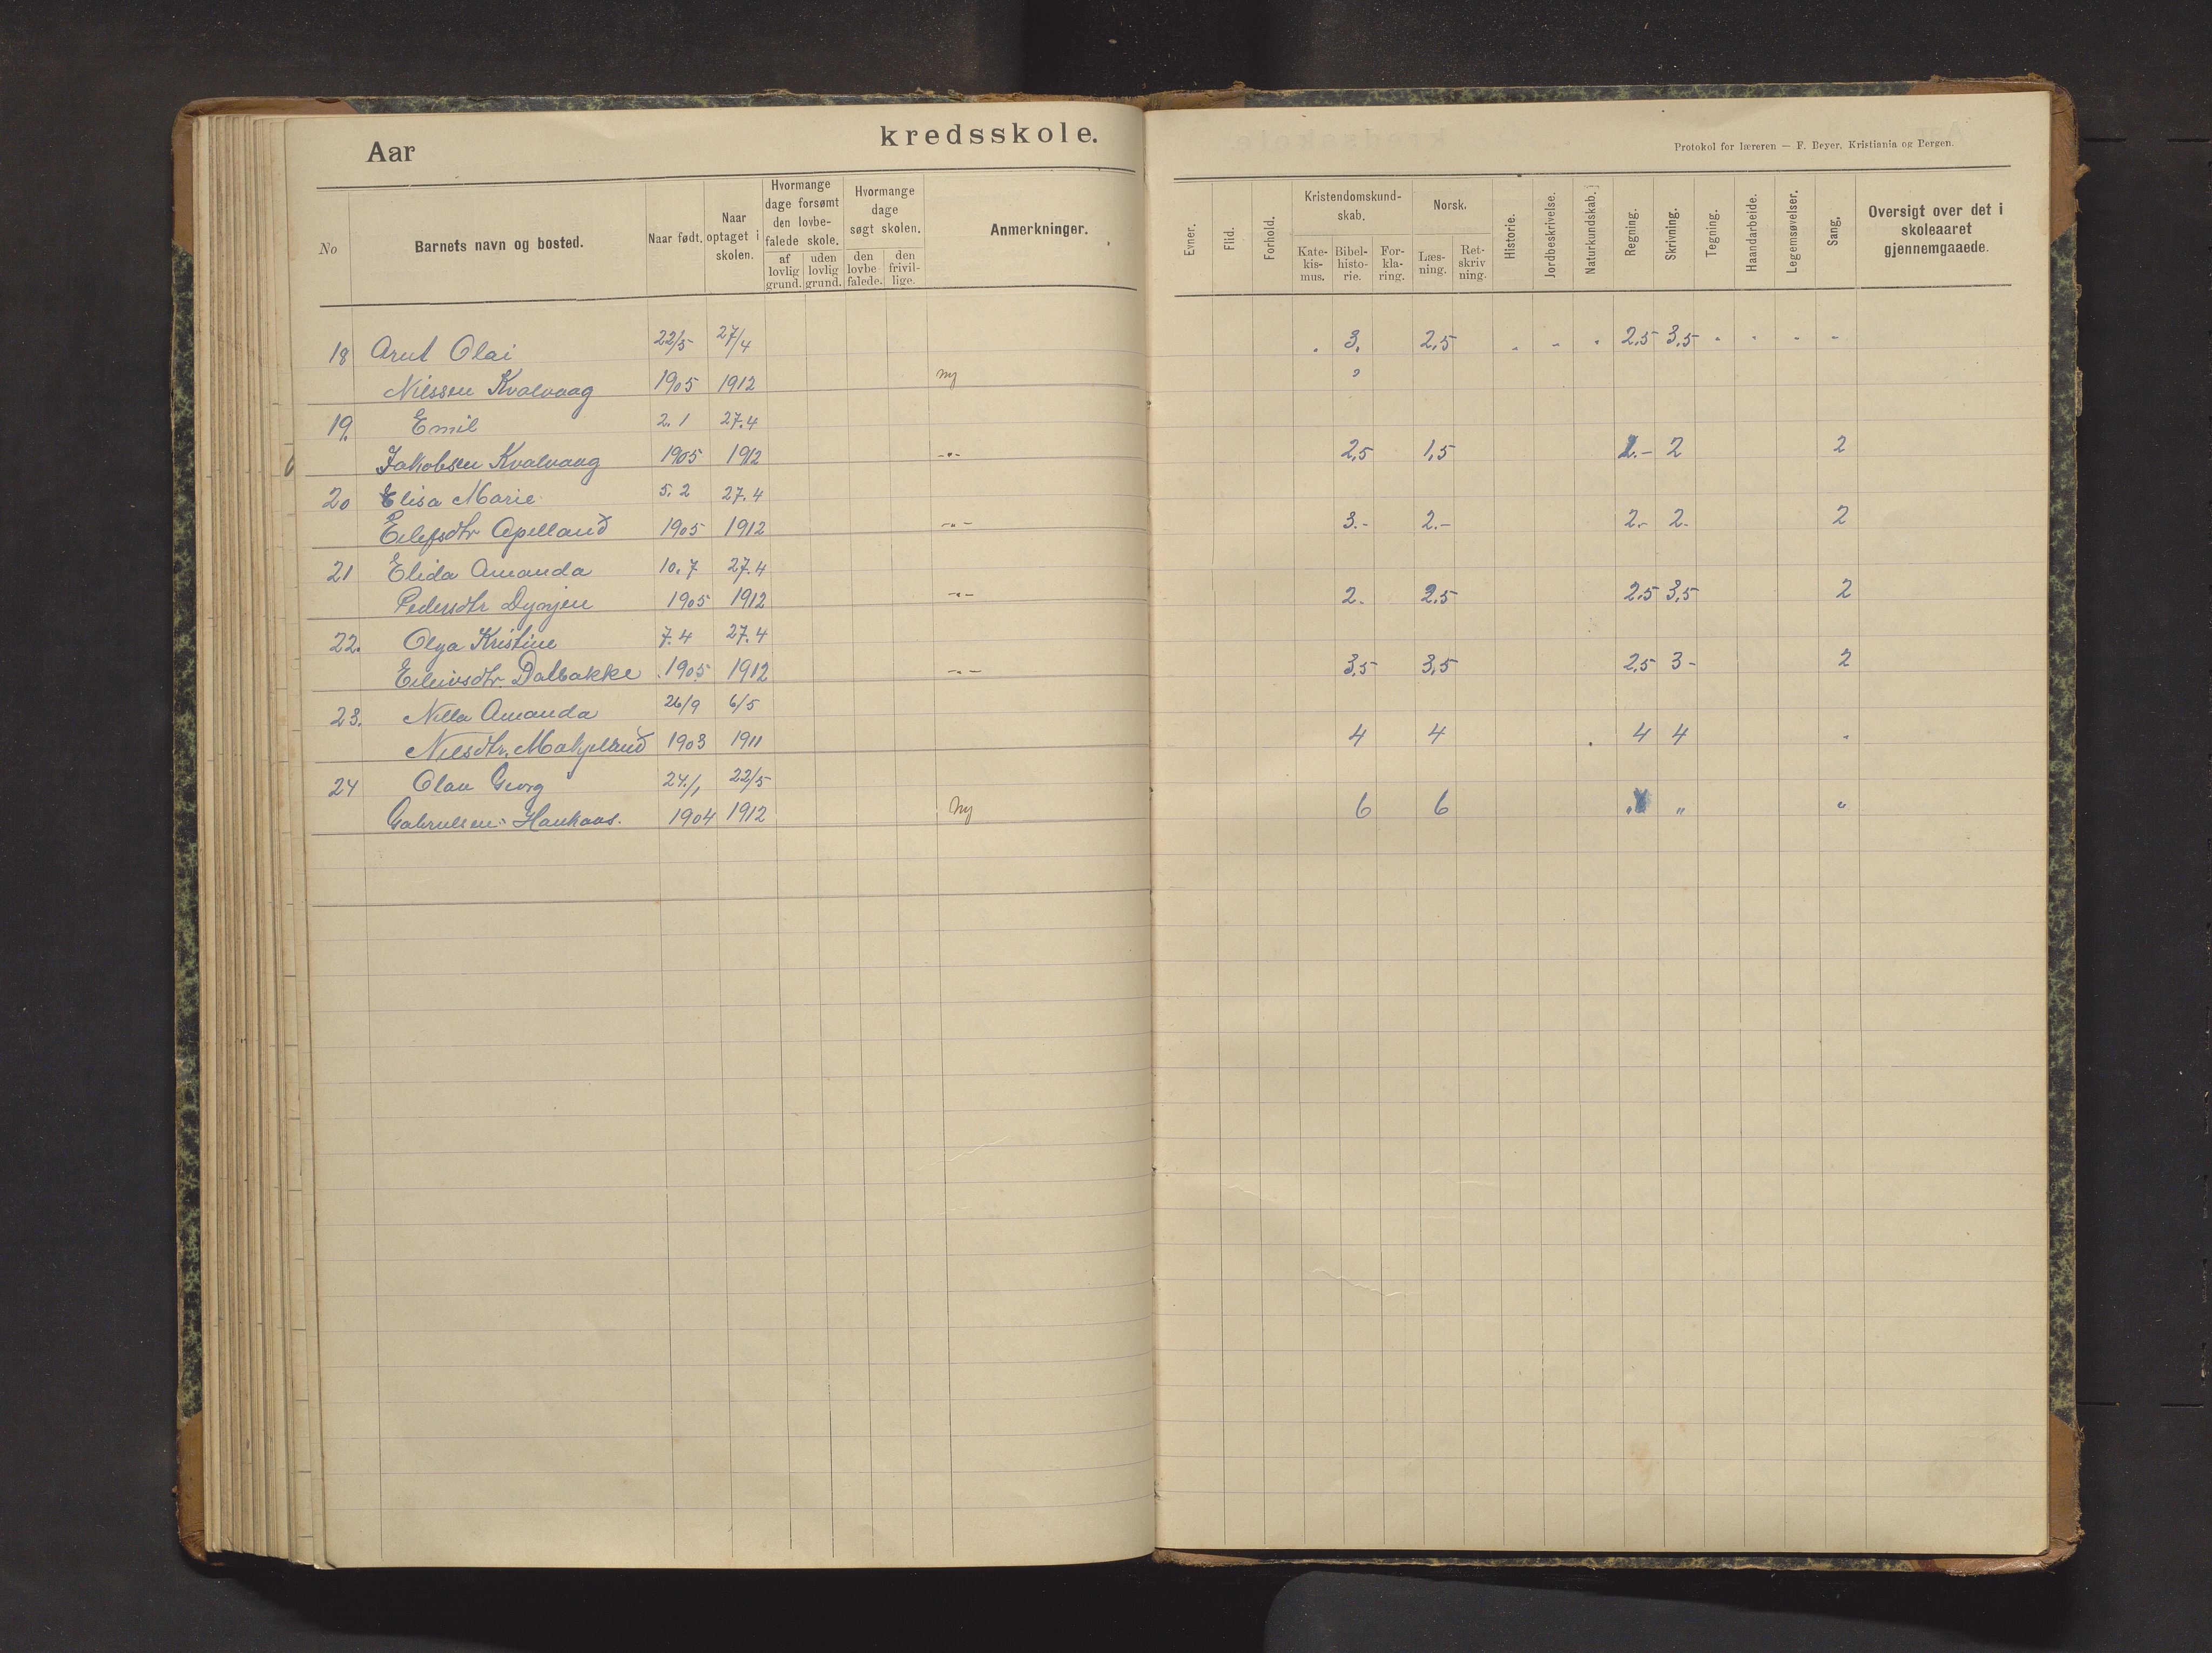 Aar
kredsskole.
Protokol for læreren — F. Beyer, Kristiania og Bergen.
No
Barnets navn og bosted.
Naar født.
Naar optaget i skolen.
Hvormange dage forsømt den lovbefalede skole.
af lovlig grund.
uden lovlig grund.
Hvormange dage søgt skolen.
den lovbefalede.
den frivillige.
Anmerkninger.
Evner.
Flid.
Forhold.
Kristendomskundskab.
Kate-kis-mus.
Bibel-histo-rie.
For-kla-ring.
Norsk.
Læs-ning.
Ret-skriv ning.
Historie.
Jordbeskrivelse.
Naturkundskab.
Regning.
Skrivning.
Tegning.
Haandarbeide.
Legemsøvelser.
Sang.
Oversigt over det i skoleaaret gjennemgaaede.
18 Arnt Olai 22/5 27/4 3. 2,5 2,5 3,5
Nilssen Kvalvaag 1905 1912 ny
19. Emil 2.1 27.4
Jakobsen Kvalvaag 1905 1912 -"- 2,5 1,5 2
2
20 Elisa Marie 5.2 27.4
Eilefsdtr Apelland 1905 1912 -"- 3.- 2.- 2.- 2. 2
21 Elida Amanda 10.7 27.4
Pedersdtr Dynjen 1905 1912 -"- 2. 2,5 2,5 3,5 2
22. Olga Kristine 7.4 27.4
Eileivsdtr. Dalbakke 1905 1912 -"- 3,5 3,5 2,5 3- 2
23. Nilla Amanda 26/9 6/5
Nilsdtr. 1903 1911 4 4 4 4
24 Olav Georg 24/1 22/5
Gabrielsen Haukaas. 1904 1912 Ny 6 6 " "